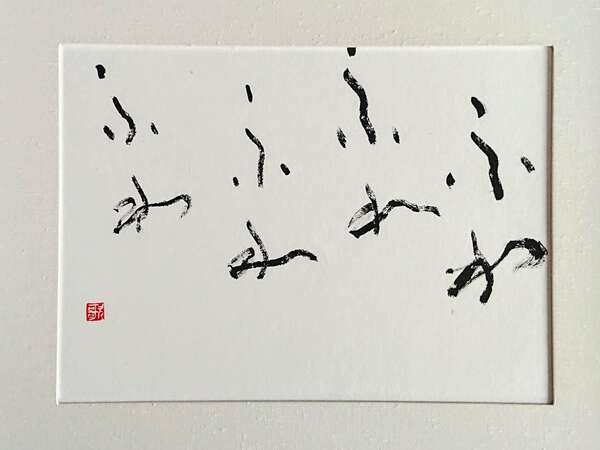 ふわ
ふわ
ふわ
ふわ